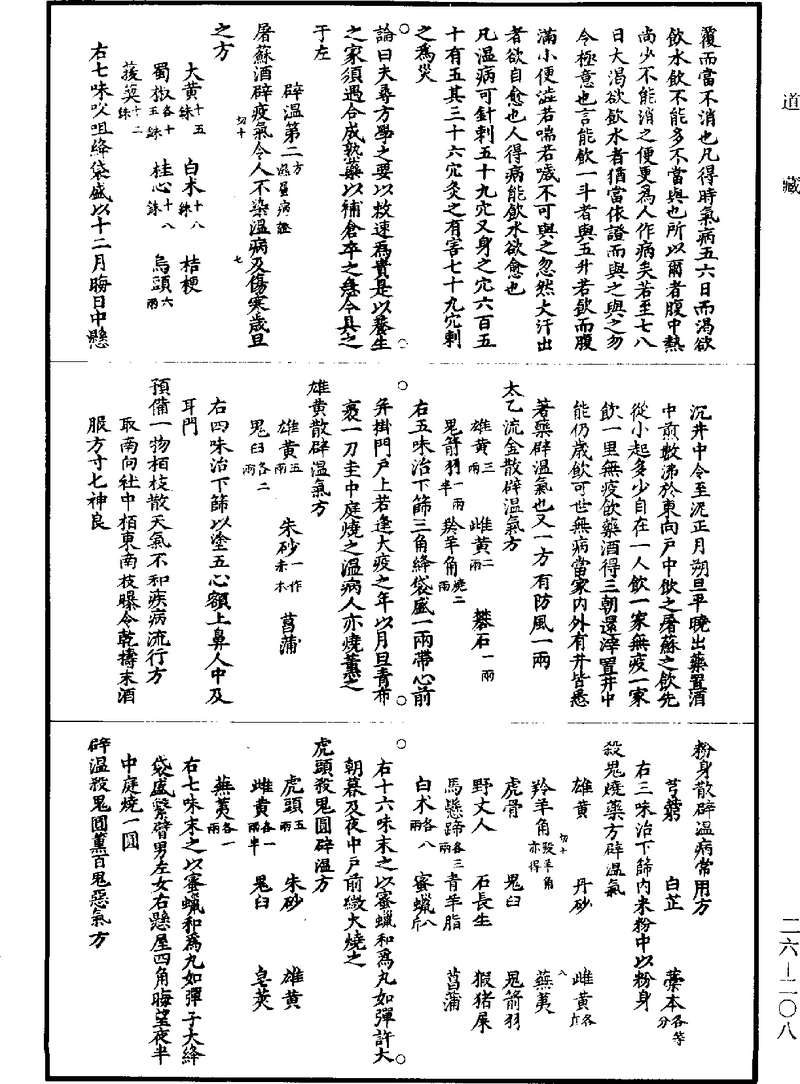 道藏
覆而當不消也凡得時氣病五六日而渴欲
飲水飲不能多不當與也所以爾者腹中熱
尚少不能消之便更爲人作病矣若至七八
日大渴欲飲水者猶當依證而與之與之勿
令極意也言能飲一斗者與五升若飲而腹
滿小便澁若喘若噦不可與之忽然大汗出
者欲自愈也人得病能飲水欲愈也
凡温病可針刺五十九穴又身之穴六百五
十有五其三十六穴灸之有害七十九穴刺
之爲災
論曰夫尋方學之要以救速爲貴是以養生
之家須遇合成熟藥以補倉卒之急今具之
于左
辟温第二方
屠蘇酒辟疫氣令人不染温病及傷寒歲旦
之方
切十
七
大黃十五銖 白木十八銖 桔梗
蜀椒各十五銖 桂心十八銖 烏頭六兩
菝葜十二銖
右七味㕮咀絳袋盛以十二月晦日中懸
沉井中令至泥正月朔旦平曉出藥置酒
中煎數沸於東向戶中飲之屠蘇之飲先
從小起多少自在一人飲一家無疫一家
飲一里無疫飲藥酒得三朝還滓置井中
能仍歲飲可世無病當家內外有井皆悉
著藥辟温氣也又一方有防風一兩
太乙流金散辟温氣方
雄黃三兩 雌黃二兩 礬石一兩
鬼箭羽一兩半 羖羊角燒二兩
右五味治下篩三角絳袋盛一兩帶心前
并掛門戶上若逢大疫之年以月旦青布
裹一刀圭中庭燒之温病人亦燒薰之
雄黃散辟温氣方
雄黃五兩 朱砂一作赤木 菖蒲
鬼臼各二兩
右四味治下篩以塗五心額上鼻人中及
耳門
預備一物栢枝散天氣不和疾病流行方
取南向社中栢東南枝曝令乾擣末酒
服方寸匕神良
粉身散辟温病常用方
芎藭 白芷 藁本各等分
右三味治下篩內米粉中以粉身
殺鬼燒藥方辟温氣
切十
八
雄黃 丹砂 雌黃各斤
羚羊角羖羊角亦得 蕪荑
虎骨 鬼臼 鬼箭羽
野丈人 石長生 猳猪屎
馬懸蹄各三兩 青羊脂 菖蒲
白木各八兩 蜜蠟八斤
右十六味末之以蜜蠟和爲丸如彈許大
朝暮及夜中戶前微火燒之
虎頭殺鬼圓辟温方
虎頭五兩 朱砂 雄黃
雌黃各一兩半 鬼臼 皂莢
蕪荑各一兩
右七味末之以蜜蠟和爲丸如彈子大絳
袋盛繫臂男左女右懸屋四角晦望夜半
中庭燒一圓
辟温殺鬼圓薰百鬼惡氣方
二六—二〇八